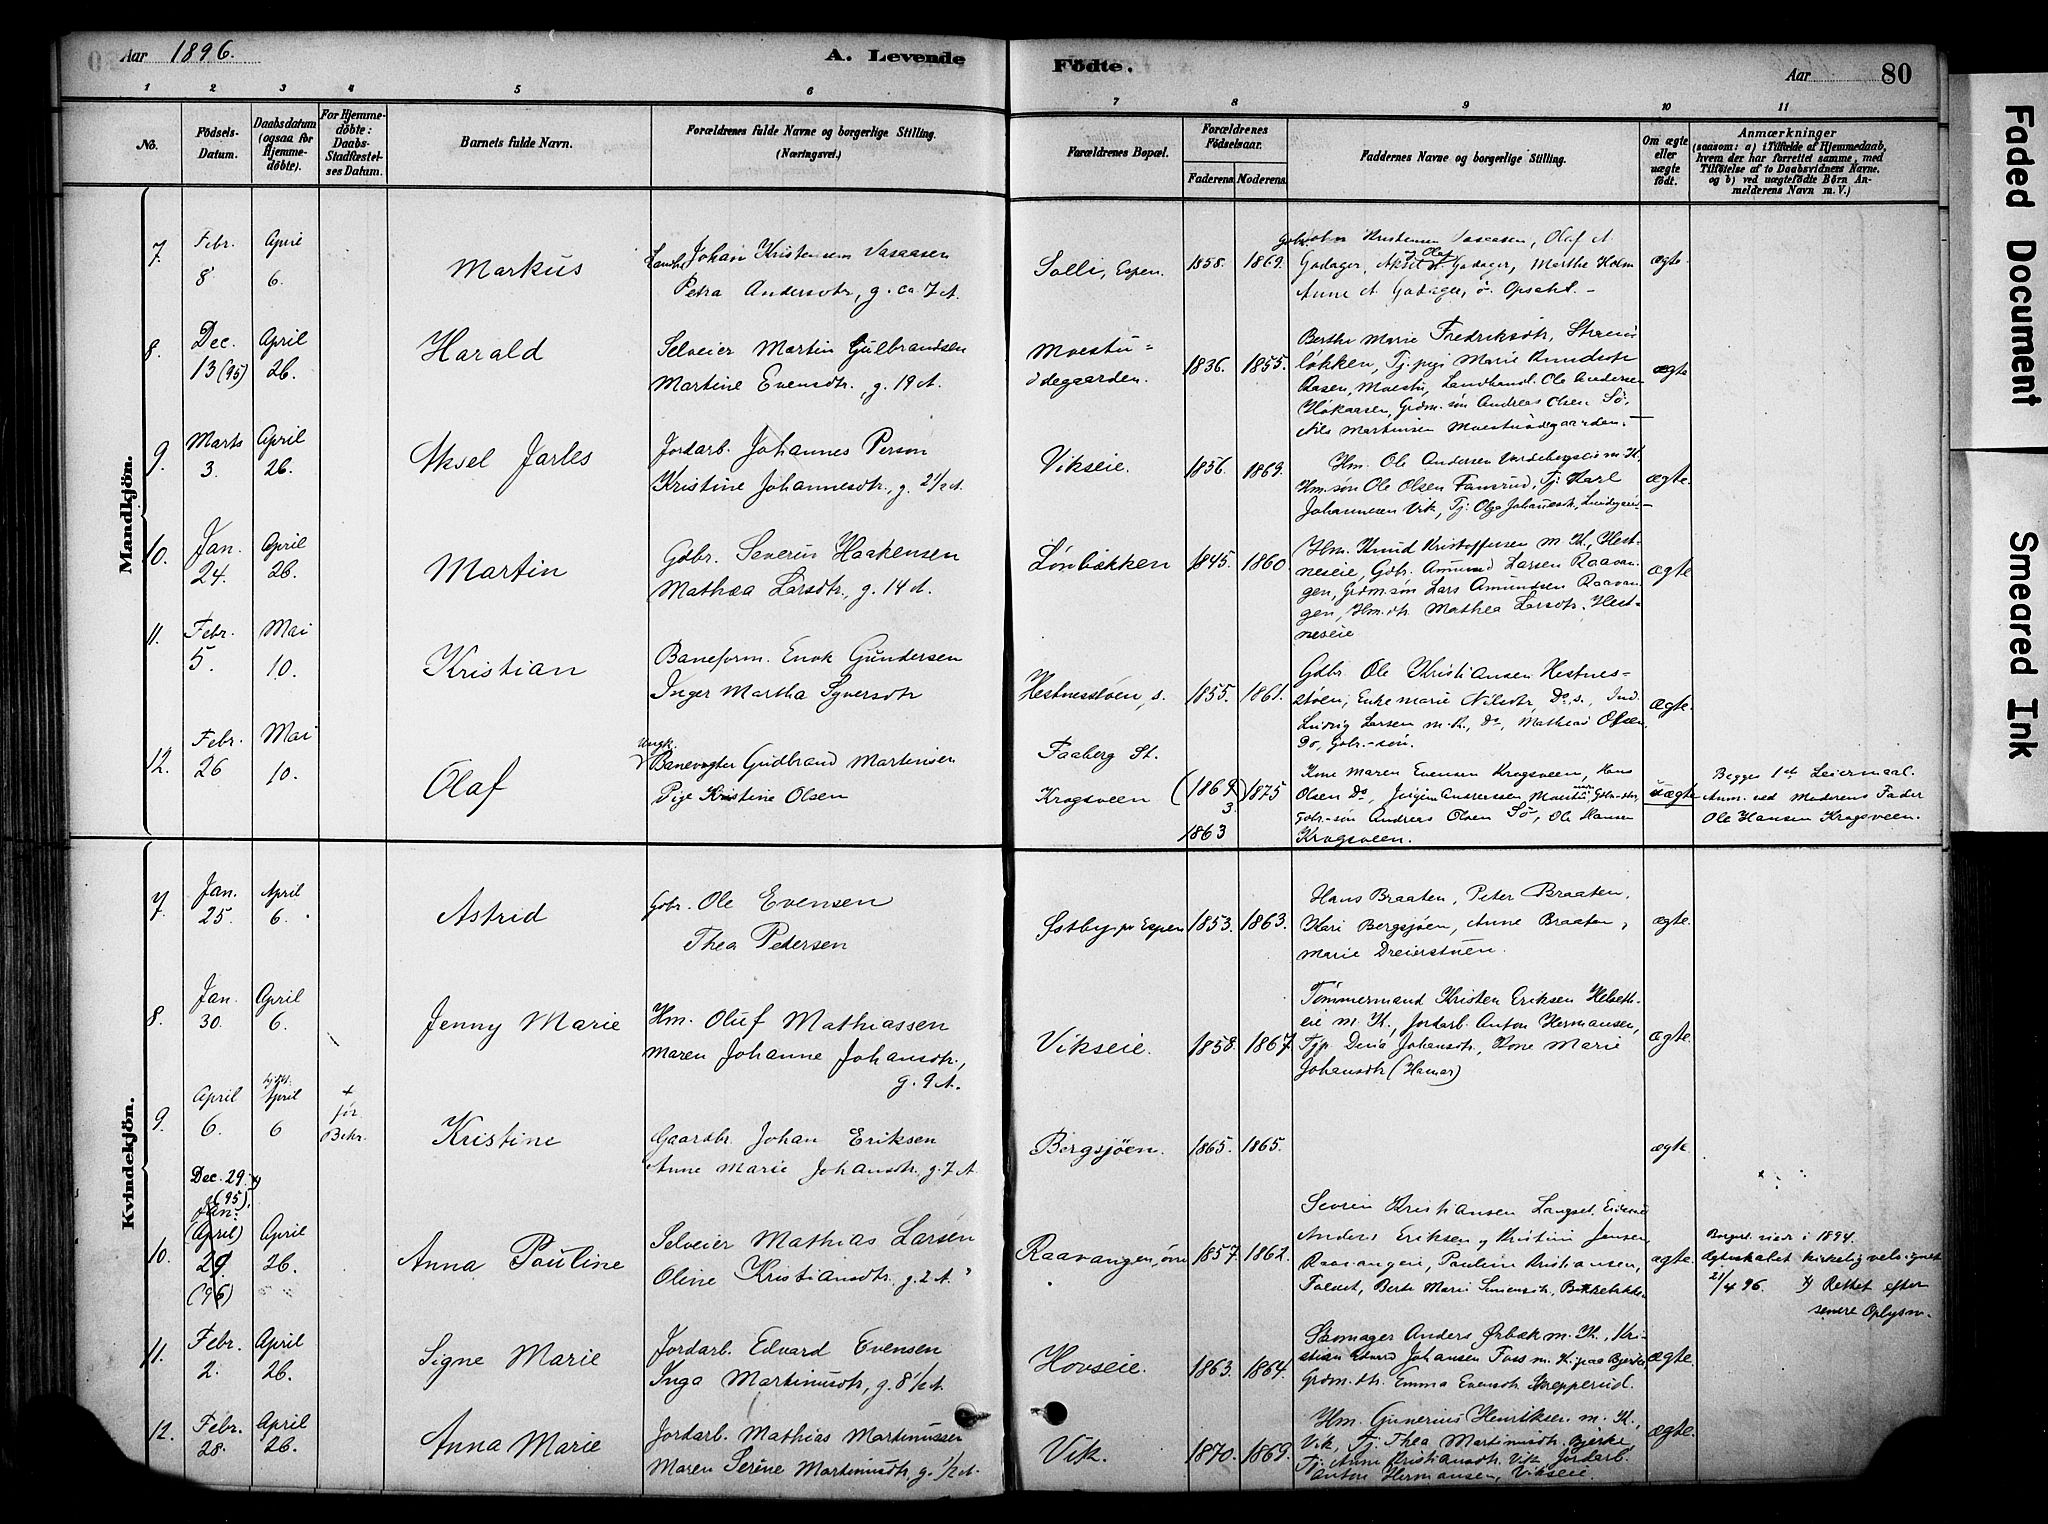 Aar 1896.
A. Levende
Födte.
Aar
80
1 2 3 4 5 6 7 8 9 10 11
No.
Födsels-Datum.
Daabsdatum (ogsaa for Hjemmedöbte).
For Hjemmedöbte: Daabs-Stadfæstelses Datum.
Barnets fulde Navn.
Forældrenes fulde Navne og borgerlige Stilling.
(Næringsvei.)
Forældrenes Bopæl.
Forældrenes Födselsaar.
Faderens. Moderens.
Faddernes Navne og borgerlige Stilling.
Om ægte eller uægte födt.
Anmærkninger
(saasom: a) i Tilfælde af Hjemmedaab,
hvem der har forrettet samme, med
Tilföielse af to Daabsvidners Navne,
og b) ved uægtefödte Börn Anmelderens Navn m. V.)
Mandkjön.
7. Febr. 8 April 6. Markus
Johan Kristensen Vasaasen
Petra Andersdtr, g. ca 7 A.
Solli, Espen 1858. 1869.
Godager, Marthe Holm
Anne A. Godager, ö. Opsahl.
ægte.
8. Dec. 13 (95) April 26. Harald
Selveier Martin Gulbrandsen
Martine Evensdtr, g. 19 A.
Moestu-ödegaarden. 1836. 1855.
Berthe Marie Fredriksdtr,
løkken, Tj.pige Marie Knudsdtr
Aasen, Moestu, Landhandl. Ole Andersen
Haakaasen, Grdm.søn Andreas Olsen Sö,
Nils Martinsen Moestuödegaarden.
ægte
9. Marts 3. April 26. Aksel Jarles
Jordarb. Johannes Person
Kristine Johannesdtr, g. 2 1/2 A.
Vikseie. 1856. 1869.
Hm. Ole Andersen Vardebergseie m. K.
Hm. søn Ole Olsen Famrud, Tj. Karl
Johannesen Vik, Tj. Olga Johannesdtr,
ægte.
10. Jan. 24. April 26. Martin
Gdbr. Severin Haakensen
Mathea Larsdtr, g. 14 A.
Lønbækken 1845. 1860.
Hm. Knud Kristoffersen m. K., Hest-
neseie, Gdbr. Amund Larsen Raavan-
gen, Grdm.søn Lars Amundsen Raavan-
gen, Hm.dtr. Mathea Larsdtr. Hest-
neseie
ægte
11. Febr. 5. Mai 10. Kristian
Baneform. Enok Gundersen
Inger Martha Syversdtr
Hestnesstøen, s. 1855. 1861.
Gdbr. Ole Kristiansen Hestnes-
støen, Enke Marie Nilsdtr, Do, s., Ind.
Ludvig Larsen m. K., Do, Mathias Olsen
Do, Gdbr.-søn.
ægte.
12. Febr. 26 Mai 10. Olaf
Ungk.
Banevogter Gudbrand Martinsen
Pige Kristine Olsen
Faaberg St.
Krogsveen (1869) 3 1863 1875
Kone Maren Evensen Krogsveen, Hans
Olsen Do, Jørgine Andreassen Moestu
Gdbr-søn Andreas Olsen Sö, Ole Hansen
Krogsveen.
uægte
Begges 1ste Leiermaal.
Anm. ved Moderens Fader
Ole Hansen Krogsveen.
Kvindekjön.
7. Jan. 25. April 6. Astrid
Gdbr. Ole Evensen
Thea Petersen
Østby pr Espen 1853. 1863.
Hans Braaten, Peter Braaten,
Kari Bergsjøen, Anne Braaten,
Marie Dreierstuen.
ægte.
8. Jan. 30. April 6. Jenny Marie
Hm. Oluf Mathiassen
Maren Johanne Johansdtr.,
g. 9 A.
Vikseie. 1858. 1867.
Tømmermand Kristen Eriksen Helseth-
eie m. K., Jordarb. Anton Hermansen,
Tjp. Dina Johansdtr, Kone Marie
Johansdtr (Hamar)
ægte.
9. April 6. April 6 + før Bekr. Kristine
Gaardbr. Johan Eriksen
Anne Marie Johansdtr. g. 7 A.
Bergsjøen. 1865. 1865.
ægte.
10. Dec. 29. x) (95). Jan. (April) 29. (96) April 26. Anna Pauline
Selveier Mathias Larsen
Oline Kristiansdtr, g. 2 A.
Raavangen, øvre 1857. 1862.
Severin Kristiansen Langset, Eidsvold
Anders Eriksen og Kristine Jensen
Raavangeie, Pauline Kristiansen,
ægte.
Borgerl. viede i 1894.
Ægteskabet kirkelig velsignet
21/4 96. x) Rettet efter
senere Oplysn.
11. Febr. 2. April 26. Signe Marie
Jordarb. Edvard Evensen
Inga Martinusdtr, g. 8 1/2 A.
Hovseie. 1863. 1864.
Skomager Anders Ørbæk m. K., Kri-
stian Johansen Foss m. K. paa Bjerke
Grdm.dtr. Emma Evensdtr Skrepperud.
ægte.
12. Febr. 28. April 26. Anna Marie
Jordarb. Mathias Martinussen
Maren Serine Martinusdtr, g. 1/2 A.
Vik. 1870. 1869.
Hm. Gunerius Henriksen m. K.,
Vik, Tj. Thea Martinusdtr. Bjerke,
Tj. Anne Kristiansdtr Vik, Jordarb.
Anton Hermansen, Vikseie.
ægte.
Faded Document
Smeared Ink